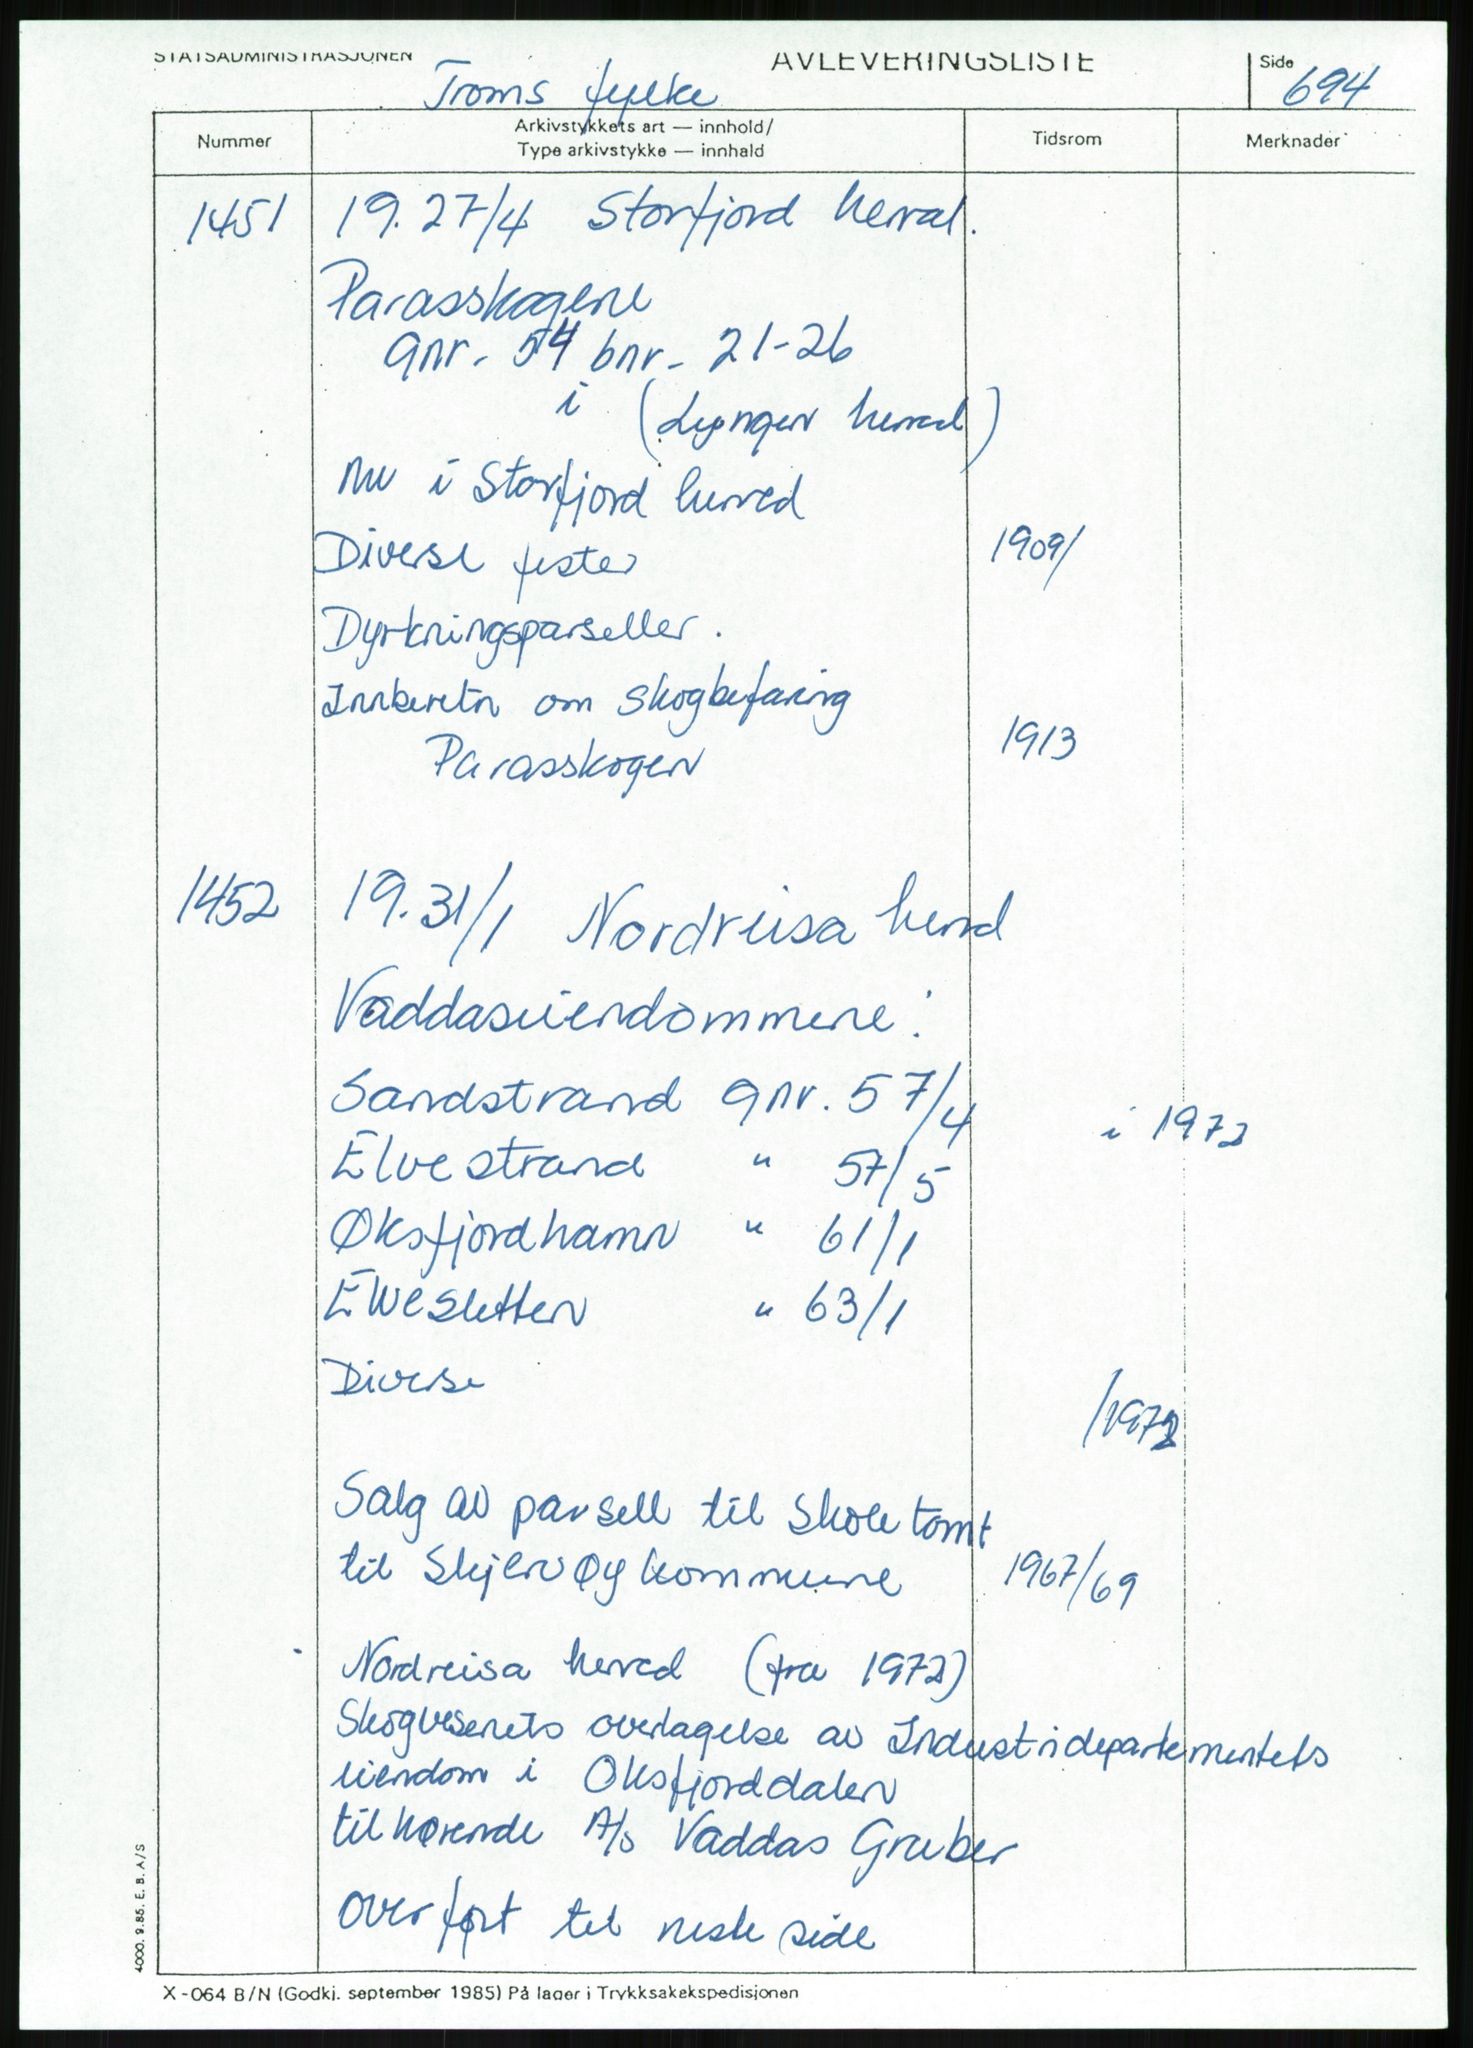 STATSADMINISTRASJONEN AVLEVERINGSLISTE Side
Troms fylke 694
Nummer Arkivstykkets art — innhold/ Tidsrom Merknader
Type arkivstykke — innhald
1451 19.27/4 Storfjord herred.
Parasskogene
gnr. 54 bnr. 21-26
i (Lyngen herred)
nu i Storfjord herred
Diverse fester 1909/
Dyrkningsparseller.
Innberetn om skogbefaring
Parasskogen 1913
1452 19.31/1 Nordreisa herred
Vaddaseiendommene:
Sandstrand gnr. 57/4 i 1972
Elvestrand " 57/5
Øksfjordhamn " 61/1
Elvesletten " 63/1
Diverse
/1972
Salg av parsell til skoletomt
til Skjervøy kommune 1967/69
Nordreisa herred (fra 1972)
Skogvesenets overtagelse av Industridepartementets
eiendom i Oksfjorddalen
tilhørende A/s Vaddas Gruber
overført til neste side
4000. 9.85. E. B. A/S
X-064 B/N (Godkj. september 1985) På lager i Trykksakekspedisjonen